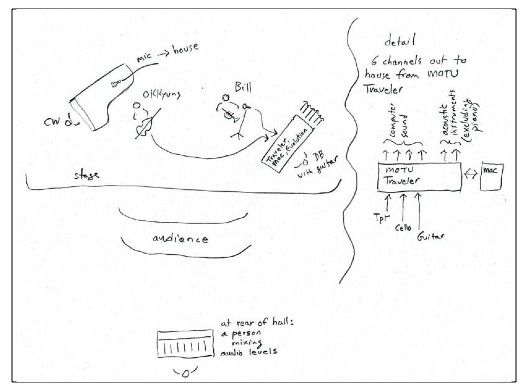 mic → house
CW
Okkyung
Bill
Traveler
Mac Evolution
DB
with guitar
stage
audience
at rear of hall:
a person
mixing
audio levels
detail
6 channels out to
house from MOTU
Traveler
computer
sound
acoustic
instruments
(excluding
piano)
MOTU
Traveler
mac
Tpt
Cello
Guitar